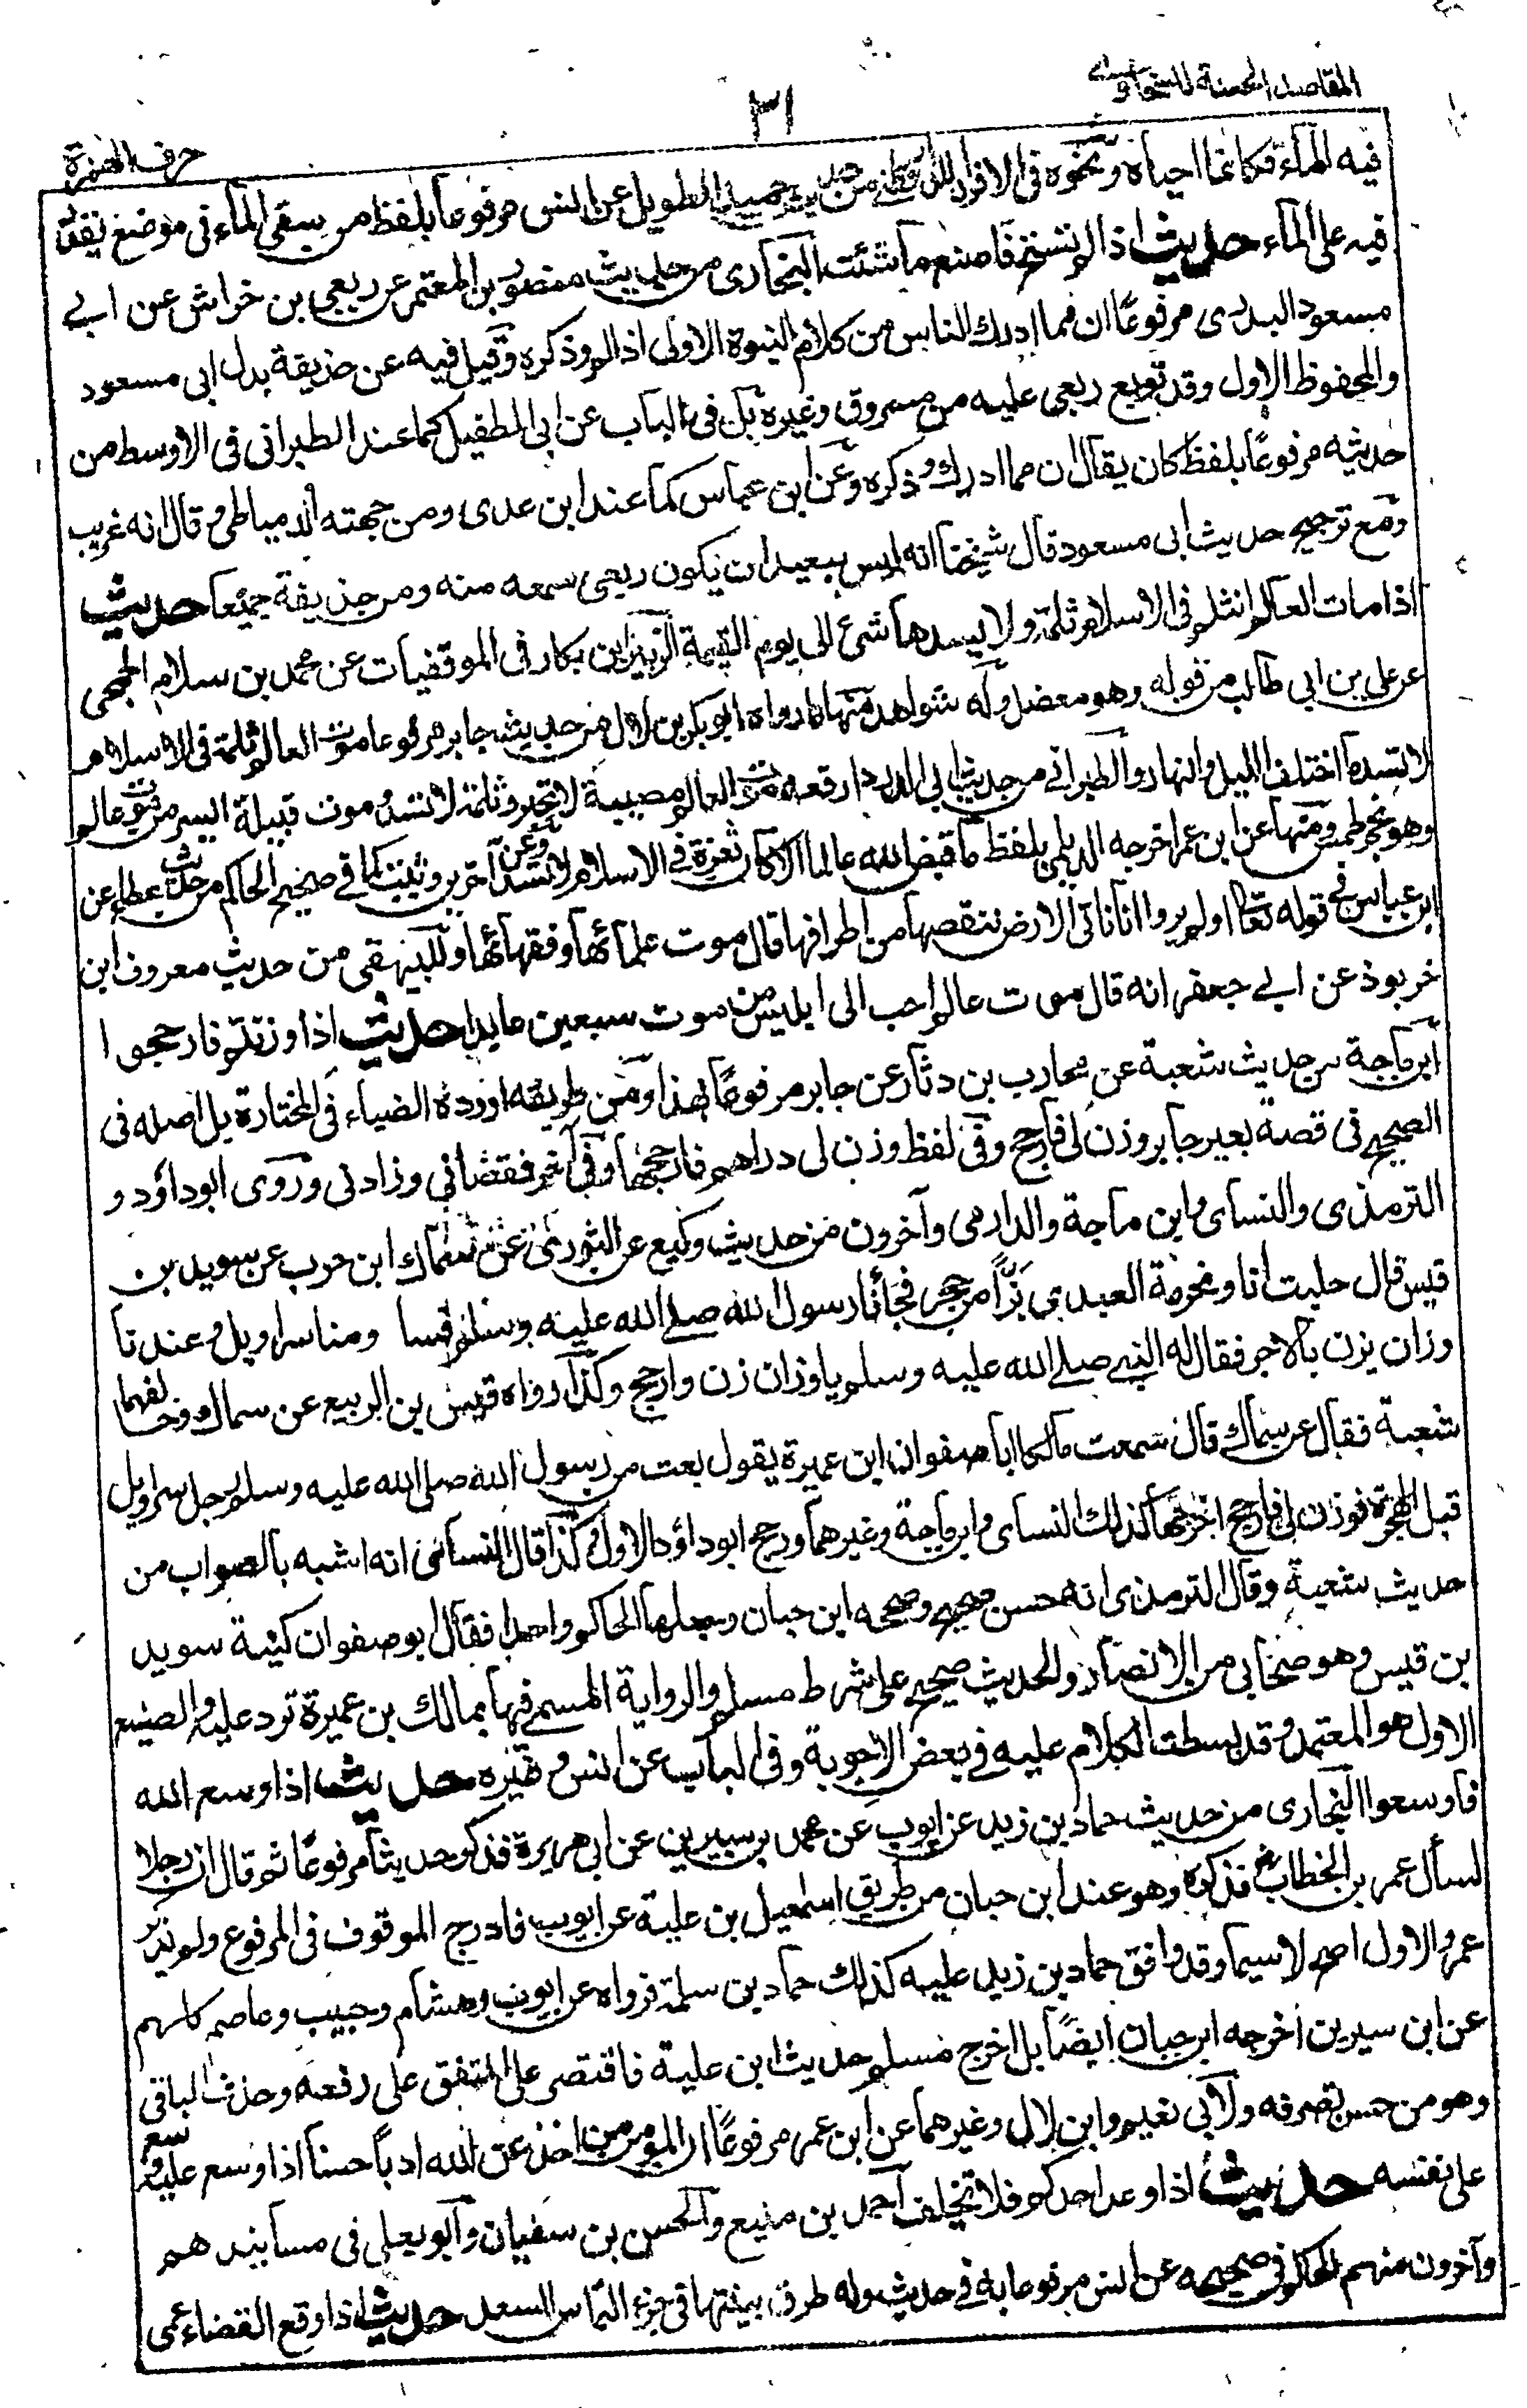 المقاصد الحسنة للسخاوي
٣١
حرف الهمزة
فيه الماء فكانما احياه ونحوه فى الافراد للدارقطنى من حديث حميد الطويل عن انس مرفوعا بلفظ من سقى الماء فى موضع نقدر
فيه على الماء حديث اذا لم تستح فاصنع ما شئت البخارى من حديث منصور بن المعتمر عن ربعى بن خراش عن ابى
مسعود البدرى مرفوعًا ان مما ادرك الناس من كلام النبوة الاولى اذا لم وذكره وقيل فيه عن حذيفة بدل ابى مسعود
والمحفوظ الاول وقد توبع ربعى عليه من مسروق وغيره بل فى الباب عن ابى الطفيل كما عند الطبرانى فى الاوسط من
حديثه مرفوعًا بلفظ كان يقال ان مما ادرك وذكره وعن ابن عباس كما عند ابن عدى ومن جهته الدمياطى وقال انه غريب
ومع ترجيح حديث ابى مسعود قال شيخنا انه ليس ببعيد ان يكون ربعى سمعه منه ومن حذيفة جميعا حديث
اذا مات العالم انثلم فى الاسلام ثلمة ولا يسدها شئ الى يوم القيمة الزبير بن بكار فى الموقفيات عن محمد بن سلام الجمحى
عن على بن ابى طالب من قوله وهو معضل وله شواهد منها ما رواه ابو بكر بن لال من حديث جابر مرفوعا موت العالم ثلمة فى الاسلام
لا تسد ما اختلف الليل والنهار والطبرانى من حديث ابى الدرداء رفعه موت العالم مصيبة لا تجبر وثلمة لا تسد وموت قبيلة ايسر من موت عالم
وهو نجم طمس ومنها عن ابن عمر اخرجه الديلمى بلفظ ما قبض الله عالما الا كان ثغرة فى الاسلام لا تسد وعن آخرين وثبت كما فى صحيح الحاكم من حديث عطاء عن
ابن عباس فى قوله تعالى اولم يروا انا ناتى الارض ننقصها من اطرافها قال موت علمائها وفقهائها وللبيهقى من حديث معروف ابن
خربوذ عن ابى جعفر انه قال موت عالم احب الى ابليس من موت سبعين عابدا حديث اذا وزنتم فارجحوا
ابن ماجة من حديث شعبة عن محارب بن دثار عن جابر مرفوعًا بهذا ومن طريقه اورده الضياء فى المختارة بل اصله فى
الصحيح فى قصة بعير جابر وزن لى فارجح وفى لفظ وزن لى دراهم فارجحها وفى آخر فقضانى وزادنى وروى ابو داؤد و
الترمذى والنساى وابن ماجة والدارمى وآخرون من حديث وكيع عن الثورى عن سماك ابن حرب عن سويد بن
قيس قال جلبت انا ومخرمة العبدى بَزًّا من هجر فجأنا رسول الله صلى الله عليه وسلم فسا ومنا سراويل وعندنا
وزان يزن بالاجر فقال له النبى صلى الله عليه وسلم يا وزان زن وارجح وكذا رواه قيس بن الربيع عن سماك وخالفهما
شعبة فقال عن سماك قال سمعت مالكا ابا صفوان ابن عميرة يقول بعت من رسول الله صلى الله عليه وسلم رجل سراويل
قبل الهجرة فوزن لى فارجح اخرجها كذلك النساى وابن ماجة وغيرهما ورجح ابو داؤد الاول وكذا قال النسائى انه اشبه بالصواب من
حديث شعبة وقال الترمذى انه حسن صحيح وصححه ابن حبان وجعلها الحاكم واحدا فقال ابو صفوان كنية سويد
بن قيس وهو صحابى من الانصار والحديث صحيح على شرط مسلم والرواية المسمى فيها بمالك بن عميرة ترد عليه والصنيع
الاول هو المعتمد وقد بسطت الكلام عليه فى بعض الاجوبة وفى الباب عن انس وغيره حديث اذا وسع الله
فاوسعوا البخارى من حديث حماد بن زيد عن ايوب عن محمد بن سيرين عن ابى هريرة فذكر حديثا مرفوعًا ثم قال ان رجلا
لسأل عمر بن الخطاب فذكره وهو عند ابن حبان من طريق اسمعيل بن علية عن ايوب فادرج الموقوف فى المرفوع ولم يذكر
عمر والاول اصح لاسيما وقد وافق حماد بن زيد عليه كذلك حماد بن سلمة فرواه عن ايوب وهشام وحبيب وعاصم كلهم
عن ابن سيرين اخرجه ابن حبان ايضًا بل اخرج مسلم حديث ابن علية فاقتصر على المتفق على رفعه وحذف الباقى
وهو من حسن تصرفه ولابى نعيم وابن لال وغيرهما عن ابن عمر مرفوعًا ان المومن اخذ عن الله ادبًا حسنًا اذا وسع عليه وسع
على نفسه حديث اذا وعد احدكم فلا يخلف احمد بن منيع والحسن بن سفيان وابو يعلى فى مسانيدهم
وآخرون منهم الحاكم فى صحيحه عن انس مرفوعا به فى حديث وله طرق بينتها فى جزء التماس السعد حديث اذا وقع القضاء عمى